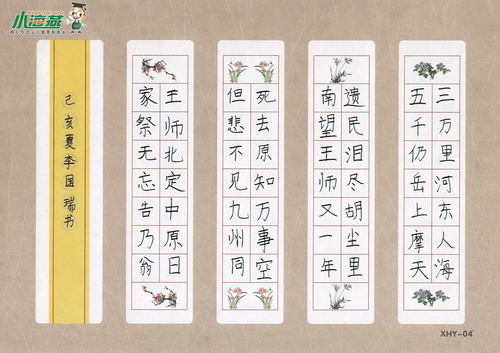 小海燕
三万里河东人海
五千仍岳上摩天
遗民泪尽胡尘里
南望王师又一年
死去原知万事空
但悲不见九州同
王师北定中原日
家祭无忘告乃翁
己亥夏李国瑞书
XHY-04